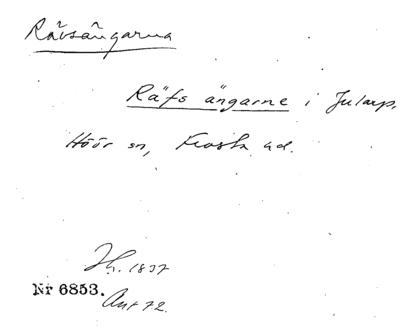 Rävsängarna
Räfs ängarne i Jularp.
Höör sn, Frosta hd.
Jh. 1837
Nr 6853.
Ant 72.